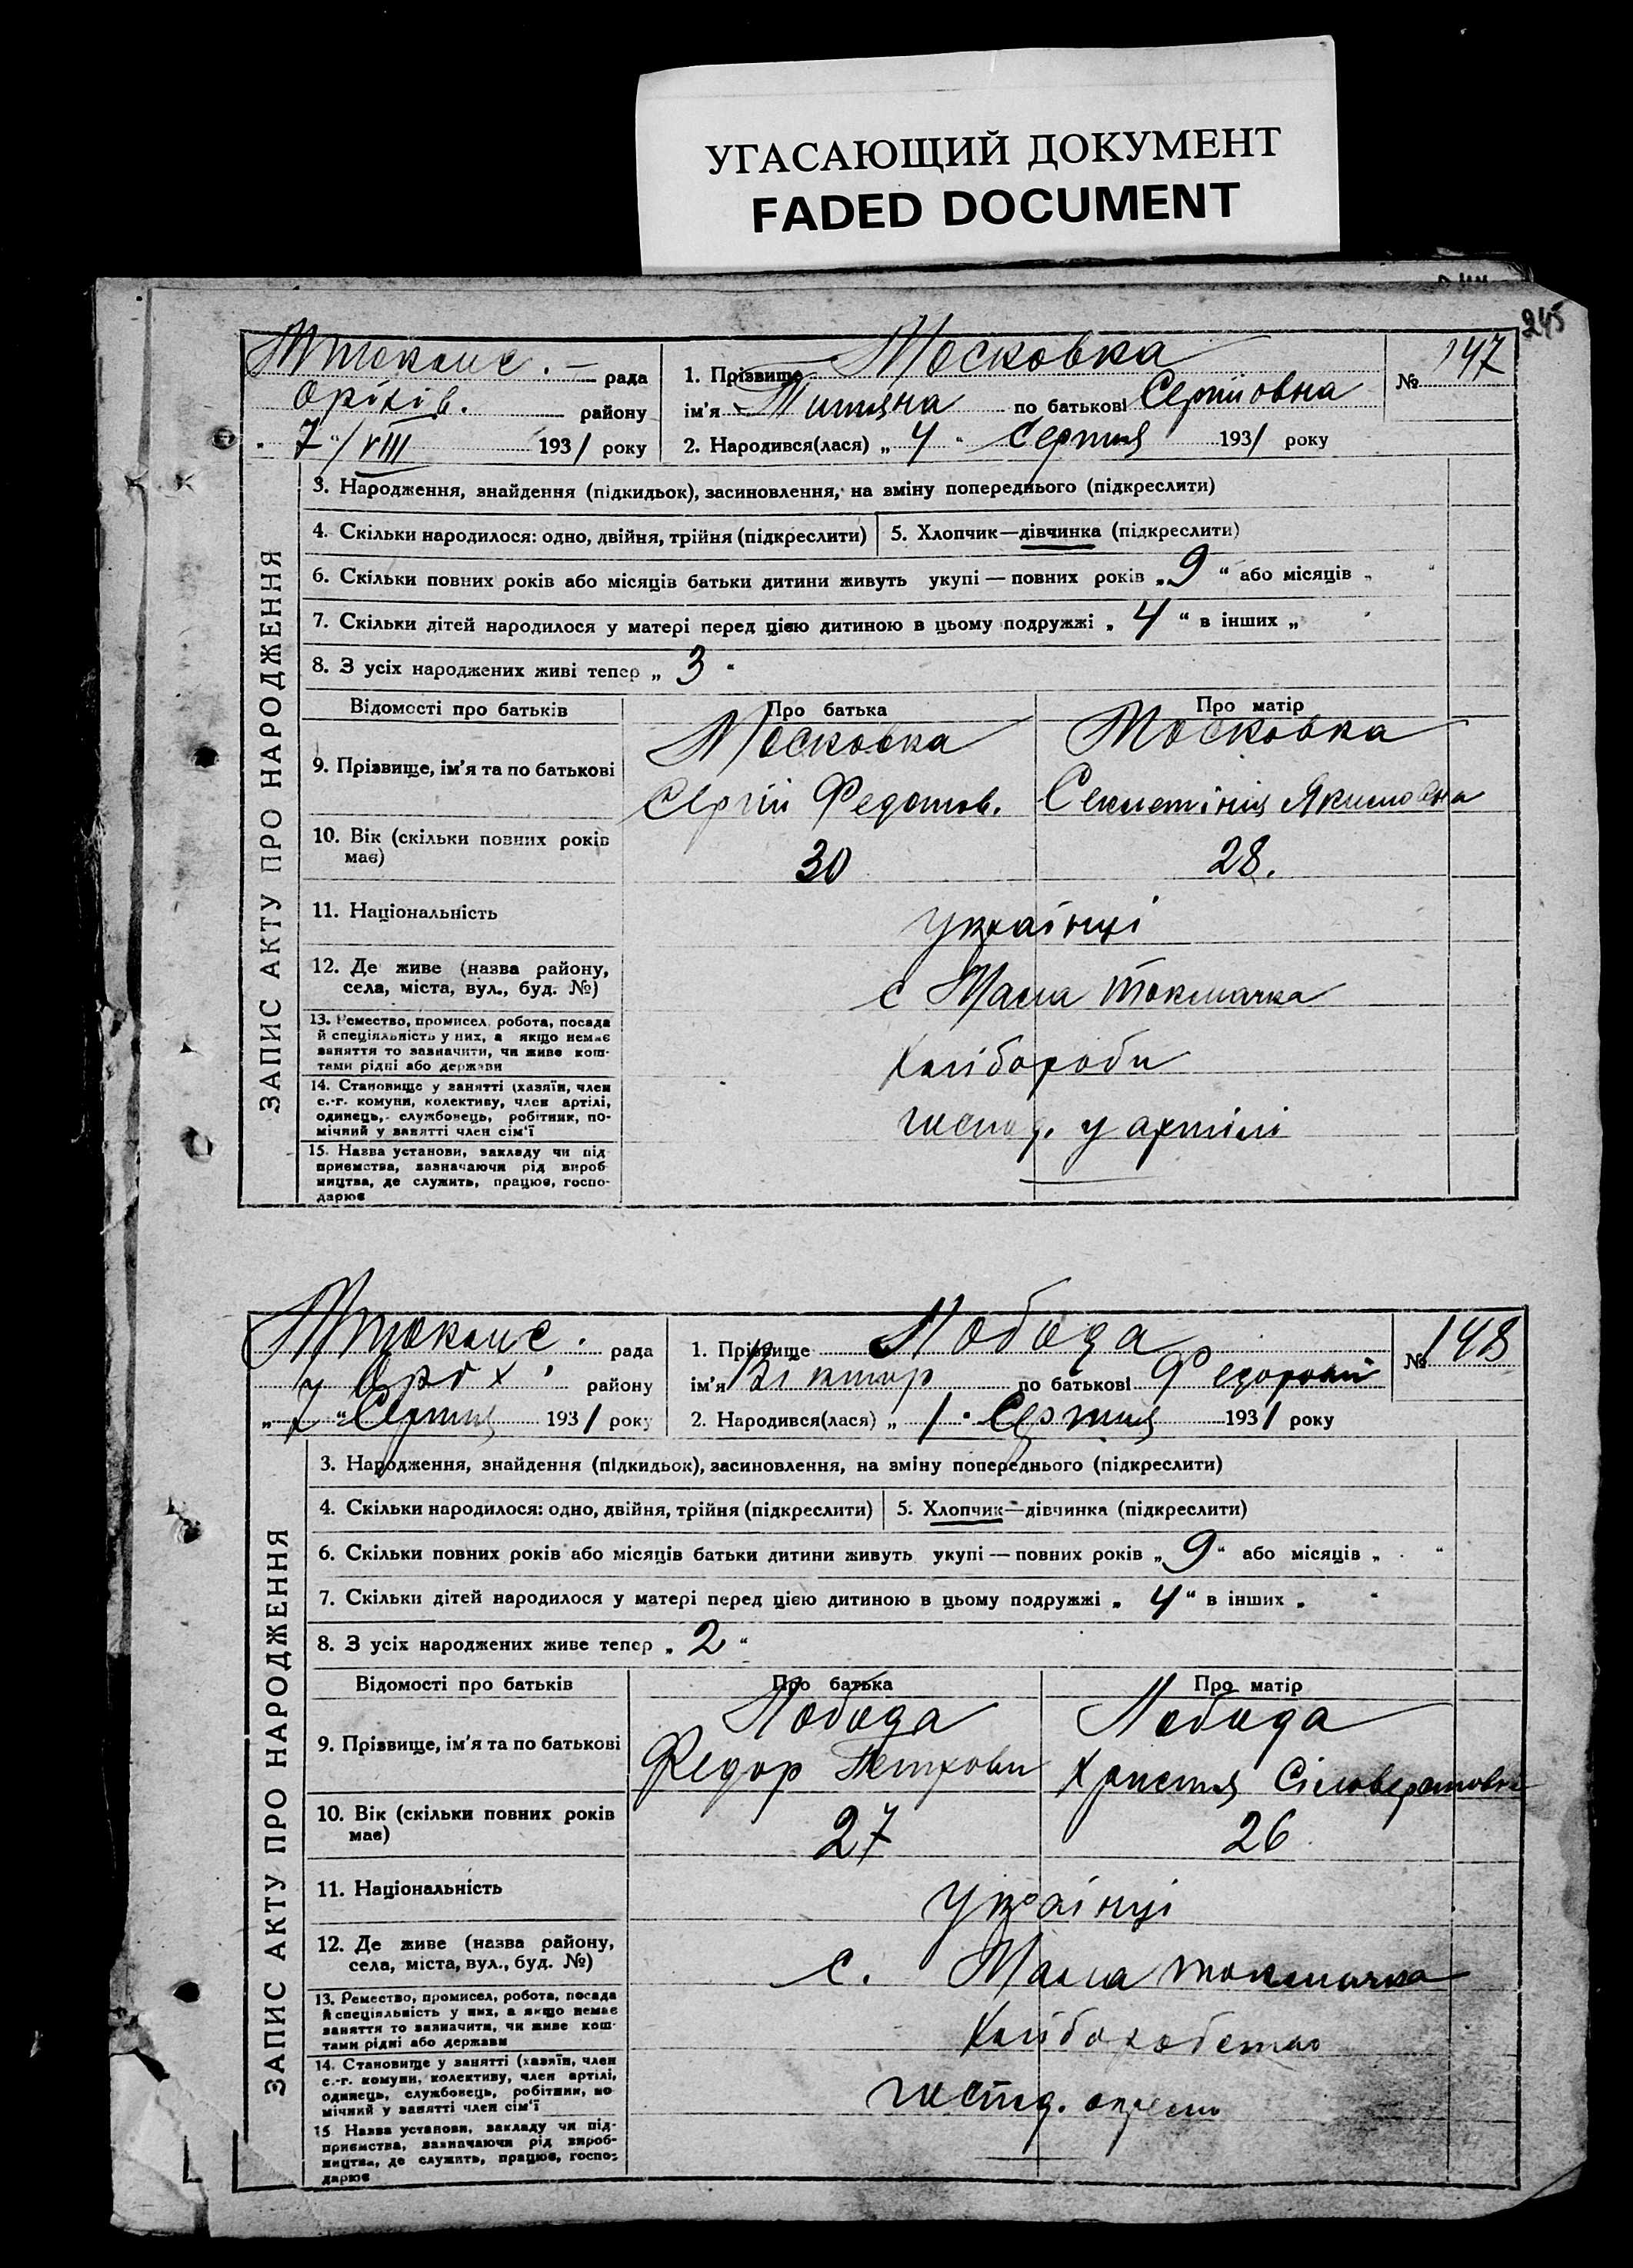 УГАСАЮЩИЙ ДОКУМЕНТ
FADED DOCUMENT
245
рада
Оріхів. району
7/VIII 1931 року
1. Прізвище Московка
ім'я по батькові Сергійовна
№ 147
2. Народився(лася) „ 4 " Серпня 1931 року
ЗАПИС АКТУ ПРО НАРОДЖЕННЯ
3. Народження, знайдення (підкидьок), засиновлення, на зміну попереднього (підкреслити)
4. Скільки народилося: одно, двійня, трійня (підкреслити)
5. Хлопчик—дівчинка (підкреслити)
6. Скільки повних років або місяців батьки дитини живуть укупі — повних років „ 9 " або місяців „ "
7. Скільки дітей народилося у матері перед цією дитиною в цьому подружжі „ 4 " в інших „ "
8. З усіх народжених живі тепер „ 3 "
Відомості про батьків
Про батька
Про матір
9. Прізвище, ім'я та по батькові
Московка
Сергій Федотов.
Московка
Якимовна
10. Вік (скільки повних років
має)
30
28.
11. Національність
Українці
12. Де живе (назва району,
села, міста, вул., буд. №)
с Мала Токмачка
13. Ремество, промисел, робота, посада
й спеціяльність у них, а якщо немає
заняття то зазначити, чи живе кош-
тами рідні або держави
Хлібороби
14. Становище у занятті (хазяїн, член
с.-г. комуни, колективу, член артілі,
одинець, службовець, робітник, по-
мічний у занятті член сім'ї
у артілі
15. Назва установи, закладу чи під-
приємства, зазначаючи рід вироб-
ництва, де служить, працює, госпо-
дарює
рада
району
„ 7 " Серпня 1931 року
1. Прізвище Лобода
ім'я Віктор по батькові Федорович
№ 148
2. Народився(лася) „ 1 " Серпня 1931 року
ЗАПИС АКТУ ПРО НАРОДЖЕННЯ
3. Народження, знайдення (підкидьок), засиновлення, на зміну попереднього (підкреслити)
4. Скільки народилося: одно, двійня, трійня (підкреслити)
5. Хлопчик—дівчинка (підкреслити)
6. Скільки повних років або місяців батьки дитини живуть укупі — повних років „ 9 " або місяців „ "
7. Скільки дітей народилося у матері перед цією дитиною в цьому подружжі „ 4 " в інших „ "
8. З усіх народжених живе тепер „ 2 "
Відомості про батьків
Про батька
Про матір
9. Прізвище, ім'я та по батькові
Лобода
Федор Петрович
Лобода
Христня
10. Вік (скільки повних років
має)
27
26
11. Національність
Українці
12. Де живе (назва району,
села, міста, вул., буд. №)
с. Мала токмачка
13. Ремество, промисел, робота, посада
й спеціяльність у них, а якщо немає
заняття то зазначити, чи живе кош-
тами рідні або держави
14. Становище у занятті (хазяїн, член
с.-г. комуни, колективу, член артілі,
одинець, службовець, робітник, по-
мічний у занятті член сім'ї
15. Назва установи, закладу чи під-
приємства, зазначаючи рід вироб-
ництва, де служить, працює, госпо-
дарює